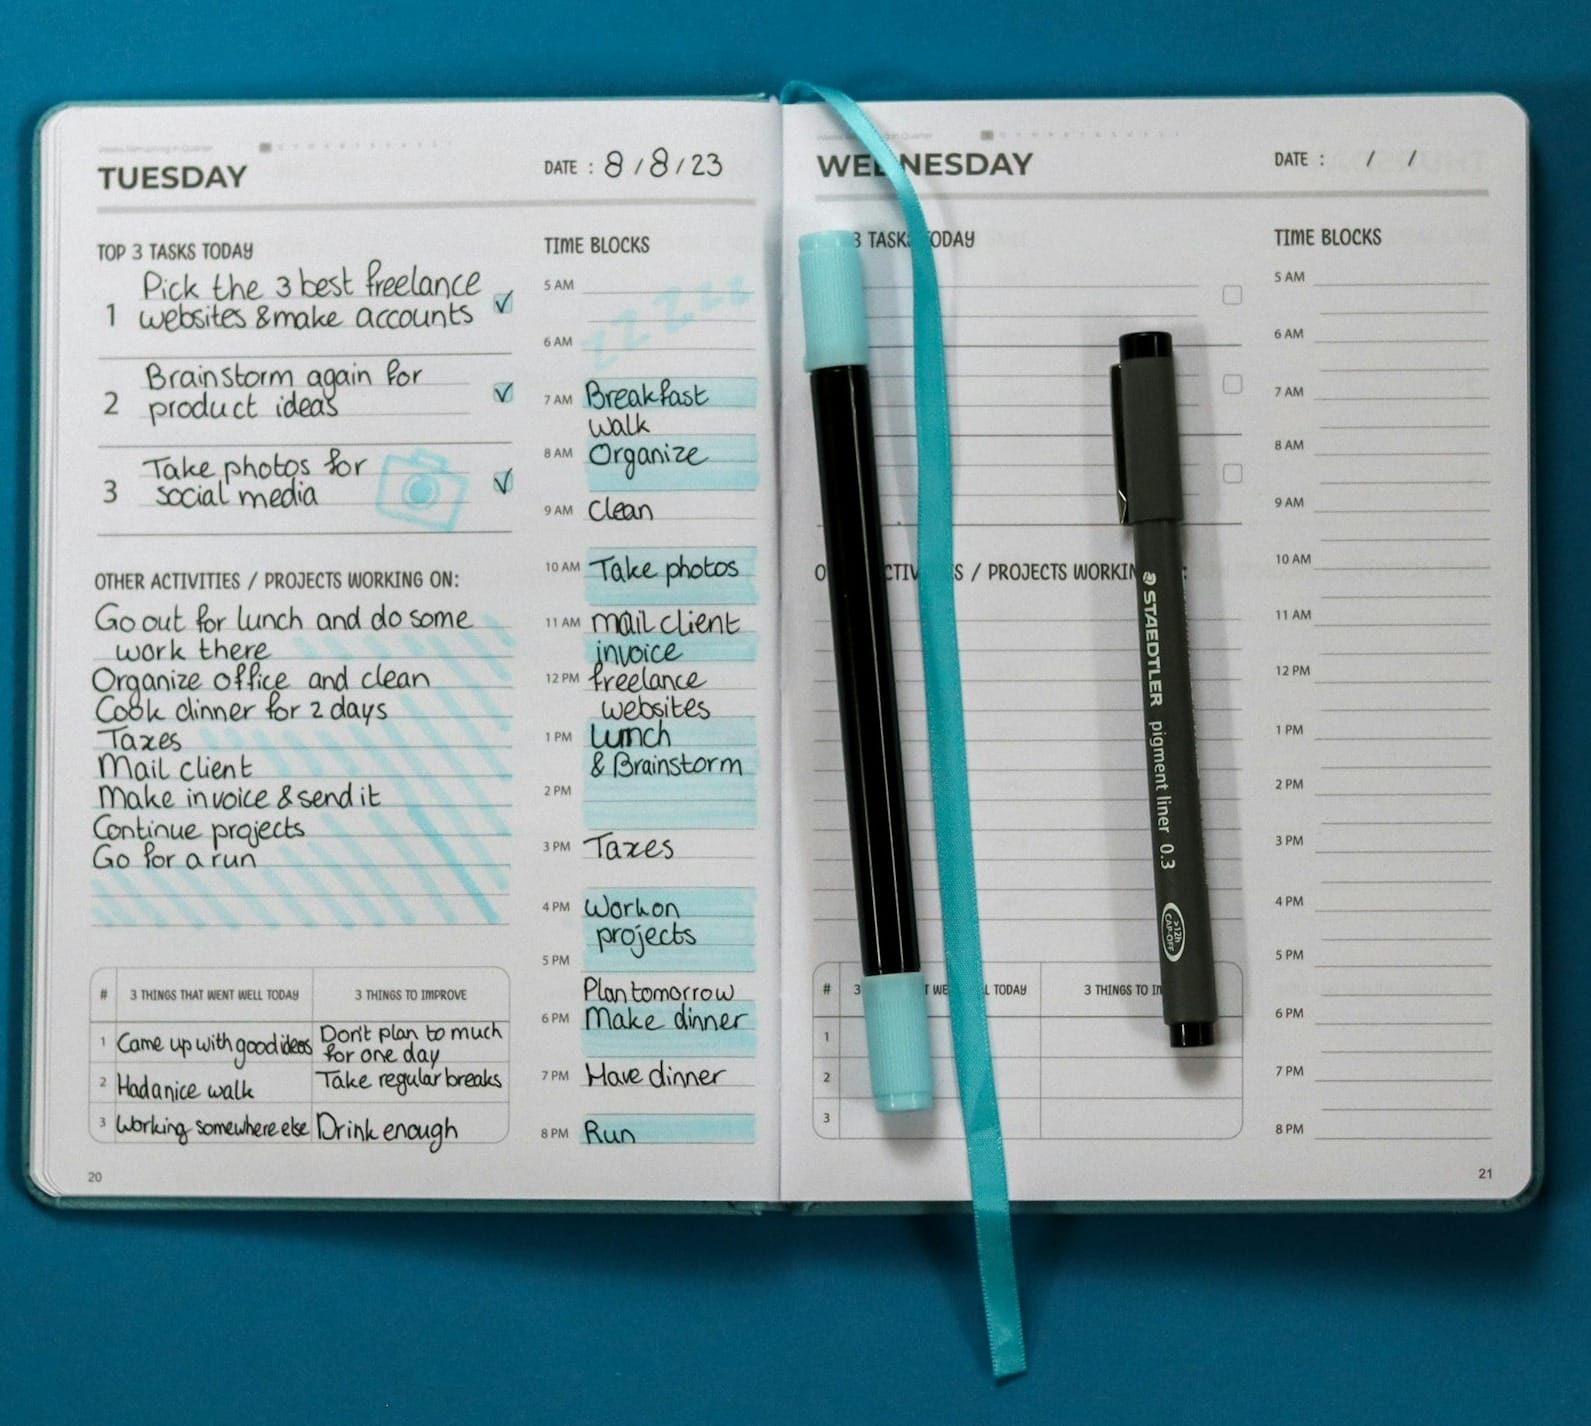 Weeks Remaining in Quarter
TUESDAY
DATE : 8 / 8 / 23
TOP 3 TASKS TODAY
1 Pick the 3 best freelance
websites & make accounts
2 Brainstorm again for
product ideas
3 Take photos for
social media
OTHER ACTIVITIES / PROJECTS WORKING ON:
Go out for lunch and do some
work there
Organize office and clean
Cook dinner for 2 days
Taxes
Mail client
Make invoice & send it
Continue projects
Go for a run
# 3 THINGS THAT WENT WELL TODAY 3 THINGS TO IMPROVE
1 Came up with good ideas Don't plan to much
for one day
2 Had a nice walk Take regular breaks
3 Working somewhere else Drink enough
20
TIME BLOCKS
5 AM
zzZzzz
6 AM
7 AM Breakfast
walk
8 AM Organize
9 AM Clean
10 AM Take photos
11 AM mail client
invoice
12 PM freelance
websites
1 PM Lunch
& Brainstorm
2 PM
3 PM Taxes
4 PM Work on
projects
5 PM
Plan tomorrow
6 PM Make dinner
7 PM Have dinner
8 PM Run
WE NESDAY
DATE : / /
3 TASKS TODAY
O CTIV S / PROJECTS WORKIN :
# 3 T WE L TODAY 3 THINGS TO IM
1
2
3
TIME BLOCKS
5 AM
6 AM
7 AM
8 AM
9 AM
10 AM
11 AM
12 PM
1 PM
2 PM
3 PM
4 PM
5 PM
6 PM
7 PM
8 PM
21
STAEDTLER pigment liner 0.3
>12h
CAP-OFF